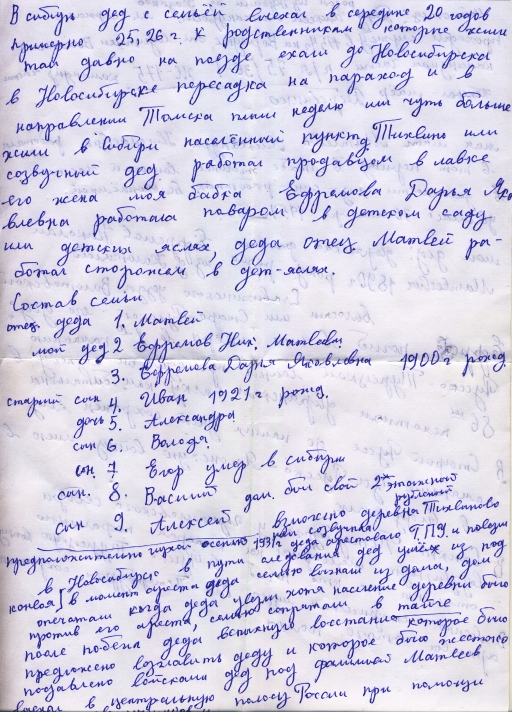 В сибирь дед с семьёй выехал в середине 20 годов
примерно 25, 26 г. к родственникам которые жили
там давно на поезде ехали до Новосибирска
в Новосибирске пересадка на параход и в
направлении Томска плыли неделю или чуть больше
жили в Сибири населённый пункт д Тихвино или
созвучный дед работал продавцом в лавке
его жена моя бабка Ефремова Дарья Яко
влевна работала поваром в детском саду
или детских яслях, деда отец Матвей ра-
ботал сторожем в дет-яслях.
Состав семьи
отец деда 1. Матвей
мой дед 2 Ефремов Ник. Матвеевич
3. Ефремова Дарья Яковлевна 1900 г рожд.
старший сын 4. Иван 1921 г. рожд.
дочь 5. Александра
сын 6. Володя
сын. 7. Егор умер в сибири
сын. 8. Василий дом был свой 2х этажный
рубленый
сын 9. Алексей взможно деревня Тихвиново
или созвучна
предположительно глухой осенью 1931 г деда арестовало Г.П.У. и повезли
в Новосибирск в пути следования дед убёг из под
конвоя, в момент ареста деда семью выгнали из дома, дом
опечатали когда деда увезли хотя население деревни было
против его ареста, семью спрятали в тайге
после побега деда вспыхнуло восстание которое было
предложено возглавить деду и которое было жестоко
подавлено войсками дед под фамилией Матвеев
выехал в центральную полосу России при помощи